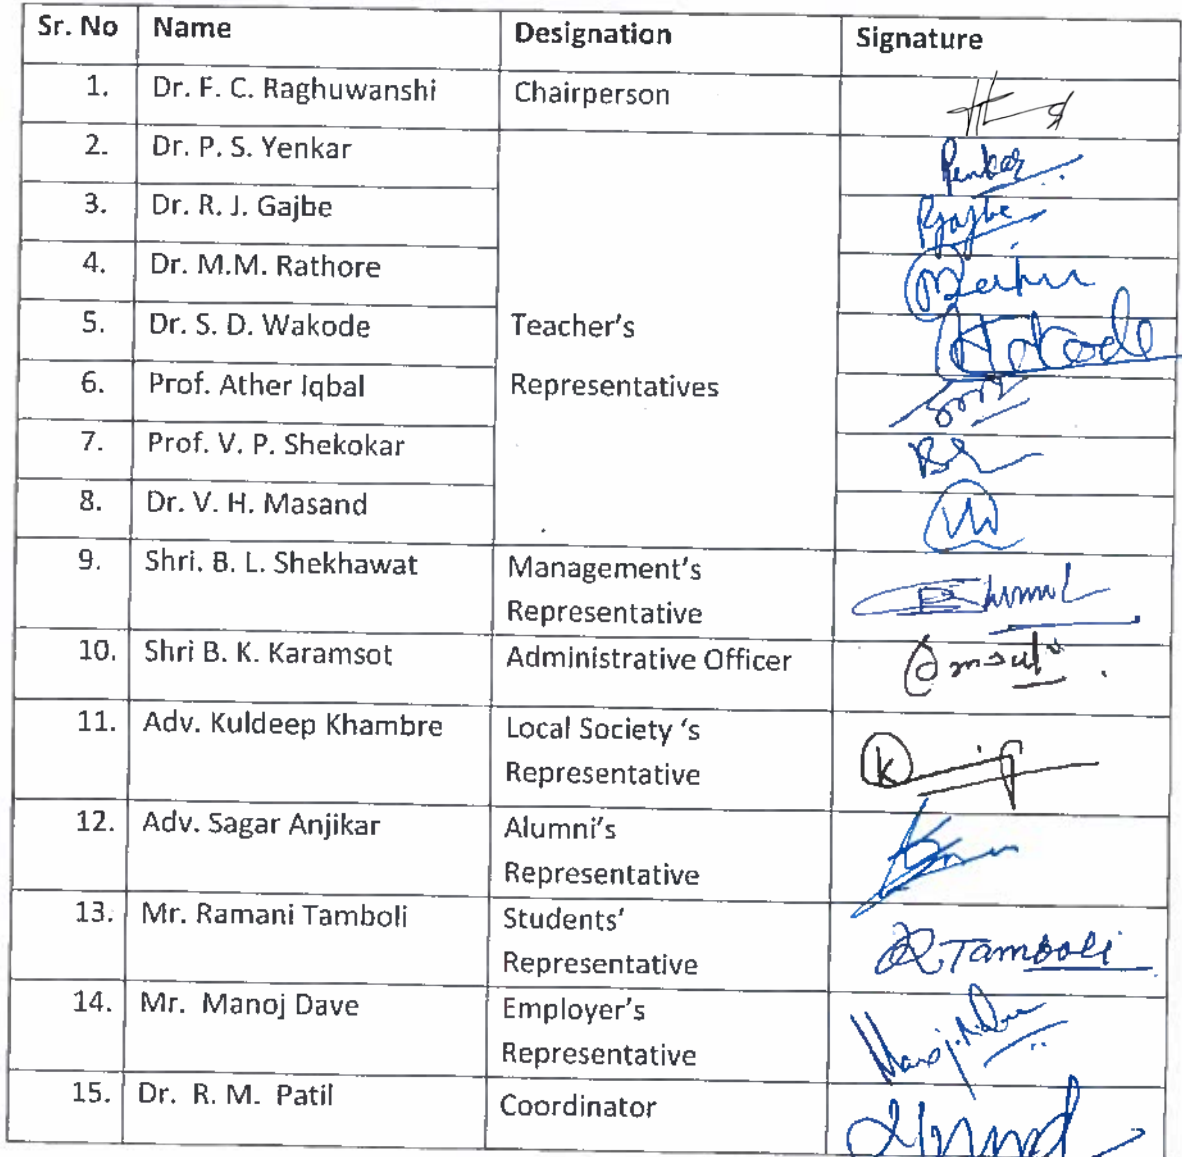 Sr. No Name Designation Signature
1. Dr. F. C. Raghuwanshi Chairperson
2. Dr. P. S. Yenkar Penkar
3. Dr. R. J. Gajbe RJGajbe
4. Dr. M.M. Rathore
5. Dr. S. D. Wakode Teacher's
6. Prof. Ather Iqbal Representatives
7. Prof. V. P. Shekokar
8. Dr. V. H. Masand
9. Shri. B. L. Shekhawat Management's
Representative
10. Shri B. K. Karamsot Administrative Officer
11. Adv. Kuldeep Khambre Local Society 's
Representative
12. Adv. Sagar Anjikar Alumni's
Representative
13. Mr. Ramani Tamboli Students'
Representative R Tamboli
14. Mr. Manoj Dave Employer's
Representative
15. Dr. R. M. Patil Coordinator